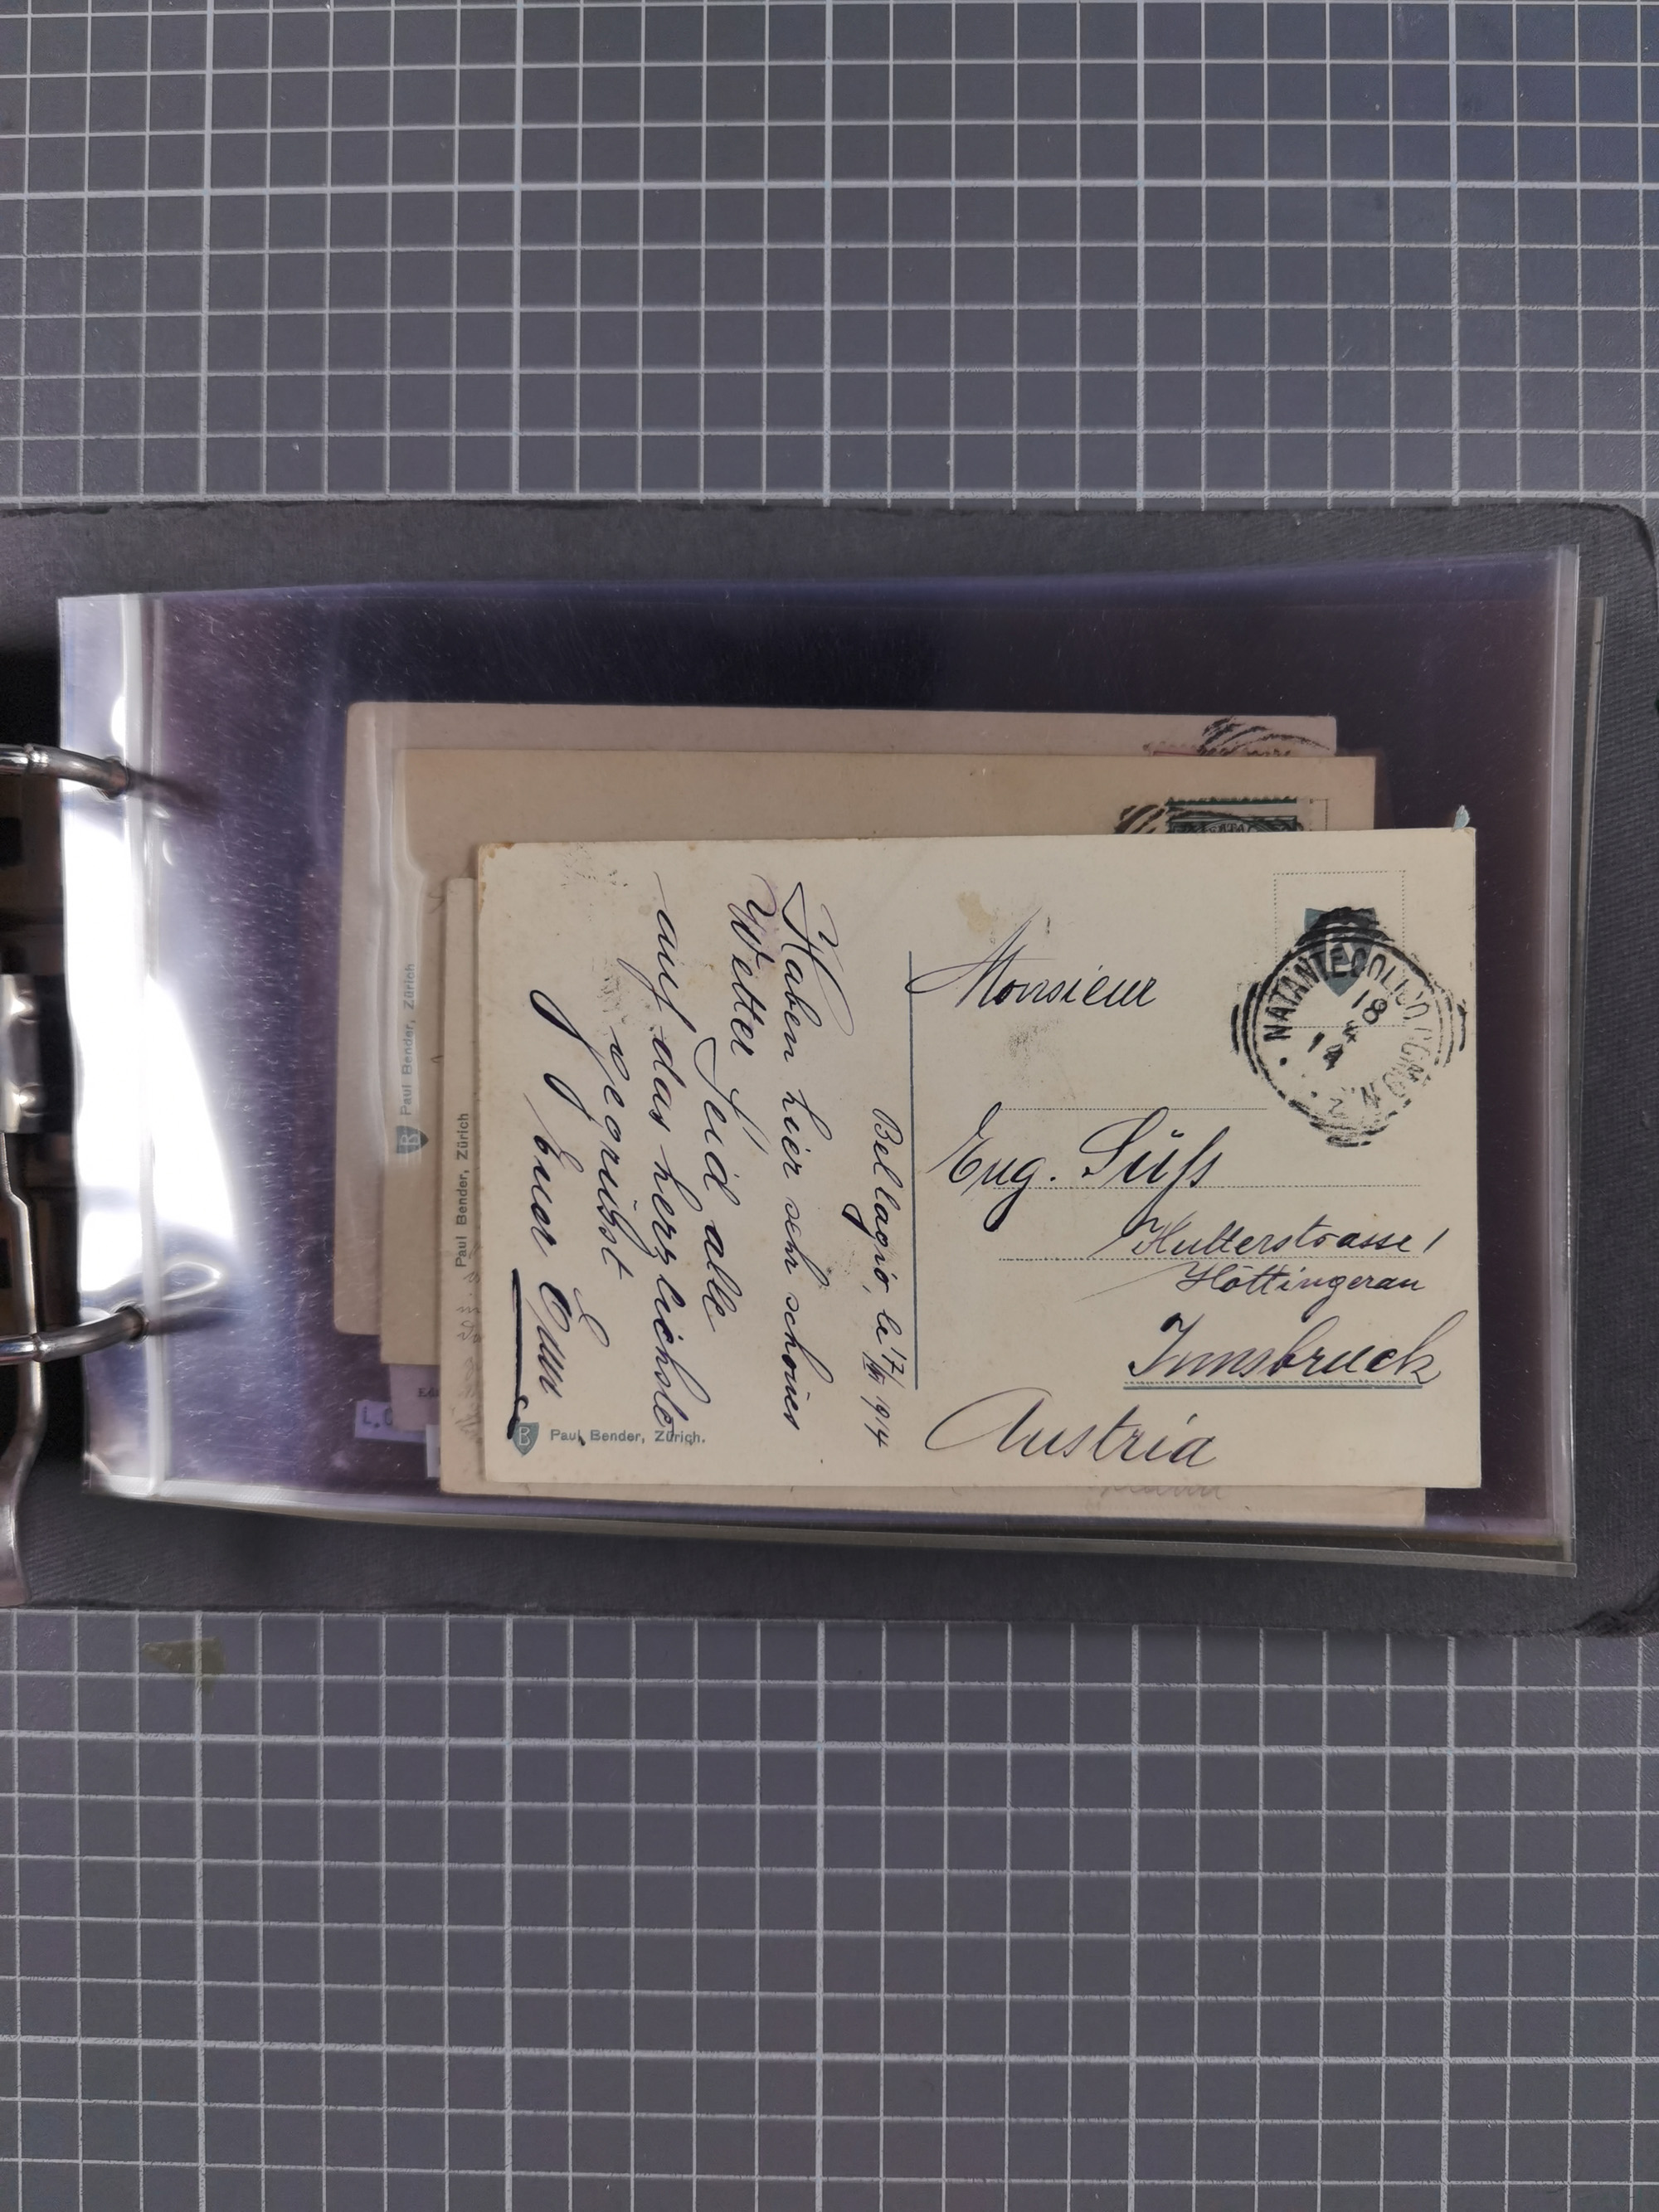 Bellagio, le 17/IV 1914
Haben hier sehr schönes
Wetter Seid alle
auf das herzlichste
gegrüßt
Euer
Paul Bender, Zürich.
Monsieur
Eug. Süss
Höttingerau
Innsbruck
Austria
NATANTE COLICO
18
4
14
Paul Bender, Zürich
Paul Bender, Zürich